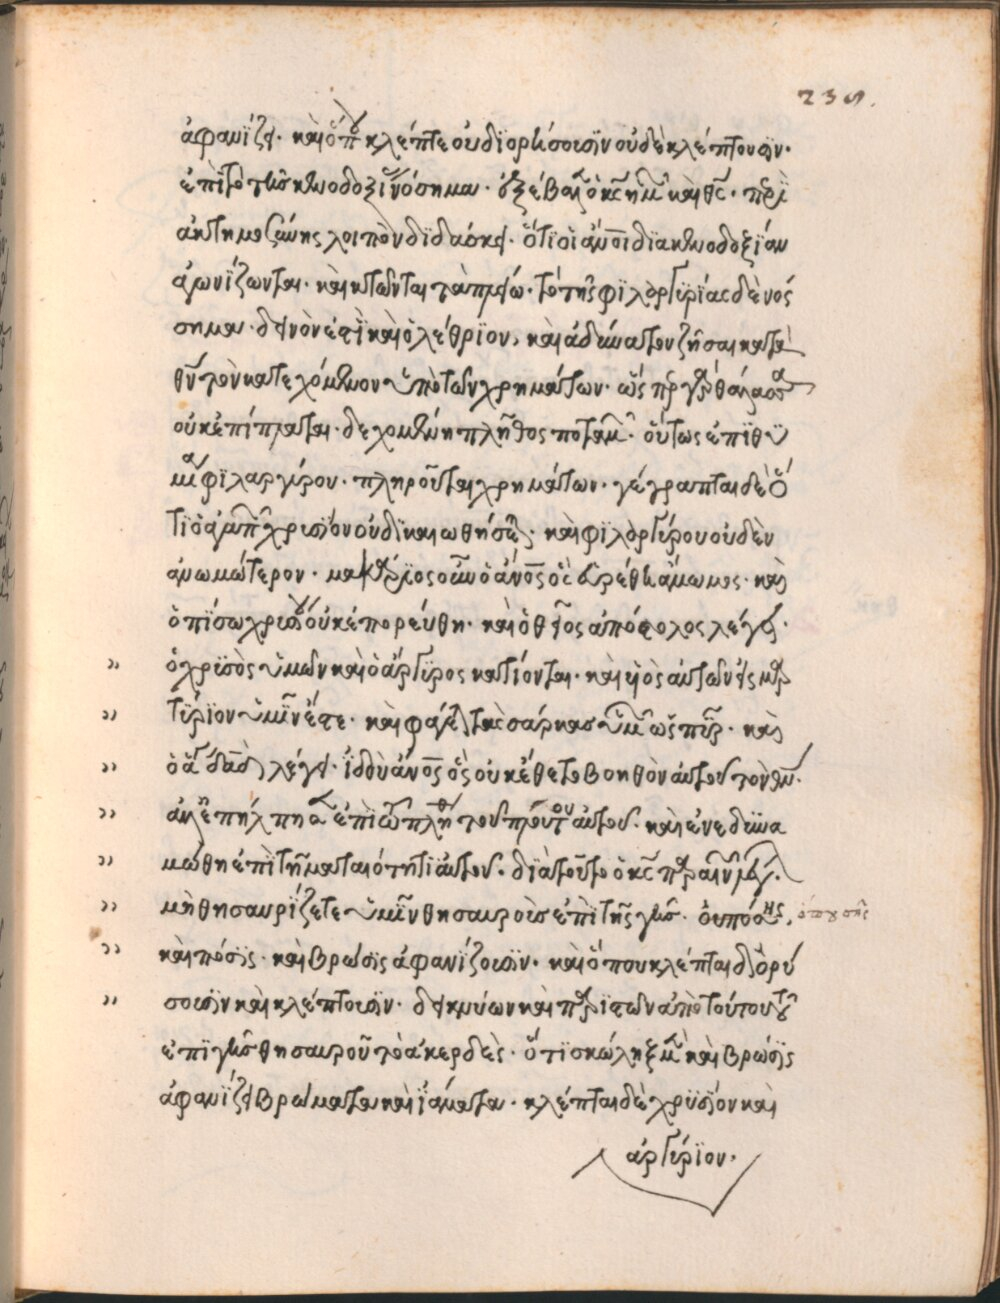 239.
ἀφανίζει· καὶ ὅπου κλέπται οὐ διορύσσουσϊν οὐδὲ κλέπτουσϊν·
ἐπὶ τὸ τῆς κενοδοξίας νόσημα· ἐξέβαλ ὁ κς ἡμῶν καὶ θς· περὶ
ἀκτημοσύνης λοιπὸν διδάσκει· ὅτι οἱ ἄνοι διὰ κενοδοξίαν
ἀγωνίζονται· καὶ κτῶνται τὰ
τὸ τῆς φιλαργυρίας δὲ νόσ
σημα· δεινὸν ἐστὶ καὶ ὀλέθριον, καὶ ἀδύνατον ζῆσαι κατὰ
θν τὸν κατεχόμενον ὑπὸ τῶν χρημάτων· ὡς γὰρ θάλασσα
οὐκ ἐπίπλαται· δεχομένη πλῆθος ποταμῶν· οὕτως ἐπιθυ
μία φιλαργύρου· πληροῦται χρημάτων· γέγραπται δὲ ὅ
τι ὁ ἀγαπῶν χρυσίον οὐ δικαιωθήσεται· καὶ φιλαργύρου οὐδὲν
ἀνομώτερον· μακάριος οὖν ὁ ἄνος ὃς εὑρέθη ἄμωμος· καὶ
ὀπίσω χρυσίου οὐκ ἐπορεύθη· καὶ ὁ θεῖος ἀπόστολος λέγει·
ὁ χρυσὸς ὑμῶν καὶ ὁ ἄργυρος κατίονται· καὶ ἰὸς αὐτῶν εἰς μαρ
τύριον ὑμῖν ἐστι· καὶ φάγεται τὰς σάρκας ὑμῶν ὡς πῦρ· καὶ
ὁ δᾱδ λέγει· ἰδοὺ ἄνος ὃς οὐκ ἔθετο βοηθὸν αὐτοῦ τὸν θν·
ἀλλ' ἐπήλπισεν ἐπὶ τῶ πλήθει τοῦ πλούτου αὐτοῦ· καὶ ἐνεδυνα
μώθη ἐπὶ τῆ ματαιότητι αὐτοῦ· διὰ τοῦτο ὁ κς παραινῶν λέγει·
μὴ θησαυρίζετε ὑμῖν θησαυροὺς ἐπὶ τῆς γῆς· ὅπου σῆς, ὅπου σὴς
καὶ πόσϊς· καὶ βρῶσϊς ἀφανίζουσϊν· καὶ ὅπου κλέπται διορύ
σουσϊν καὶ κλέπτουσϊν· δεικνύων καὶ παριστῶν ἀπὸ τούτου τοῦ
ἐπὶ γῆς θησαυροῦ τὸ ἀκερδές· ὅτι σκώληξ μὲν καὶ βρῶσϊς
ἀφανίζει βρώματα καὶ ἱμάτια· κλέπται δὲ χρυσίον καὶ
ἀργύριον·